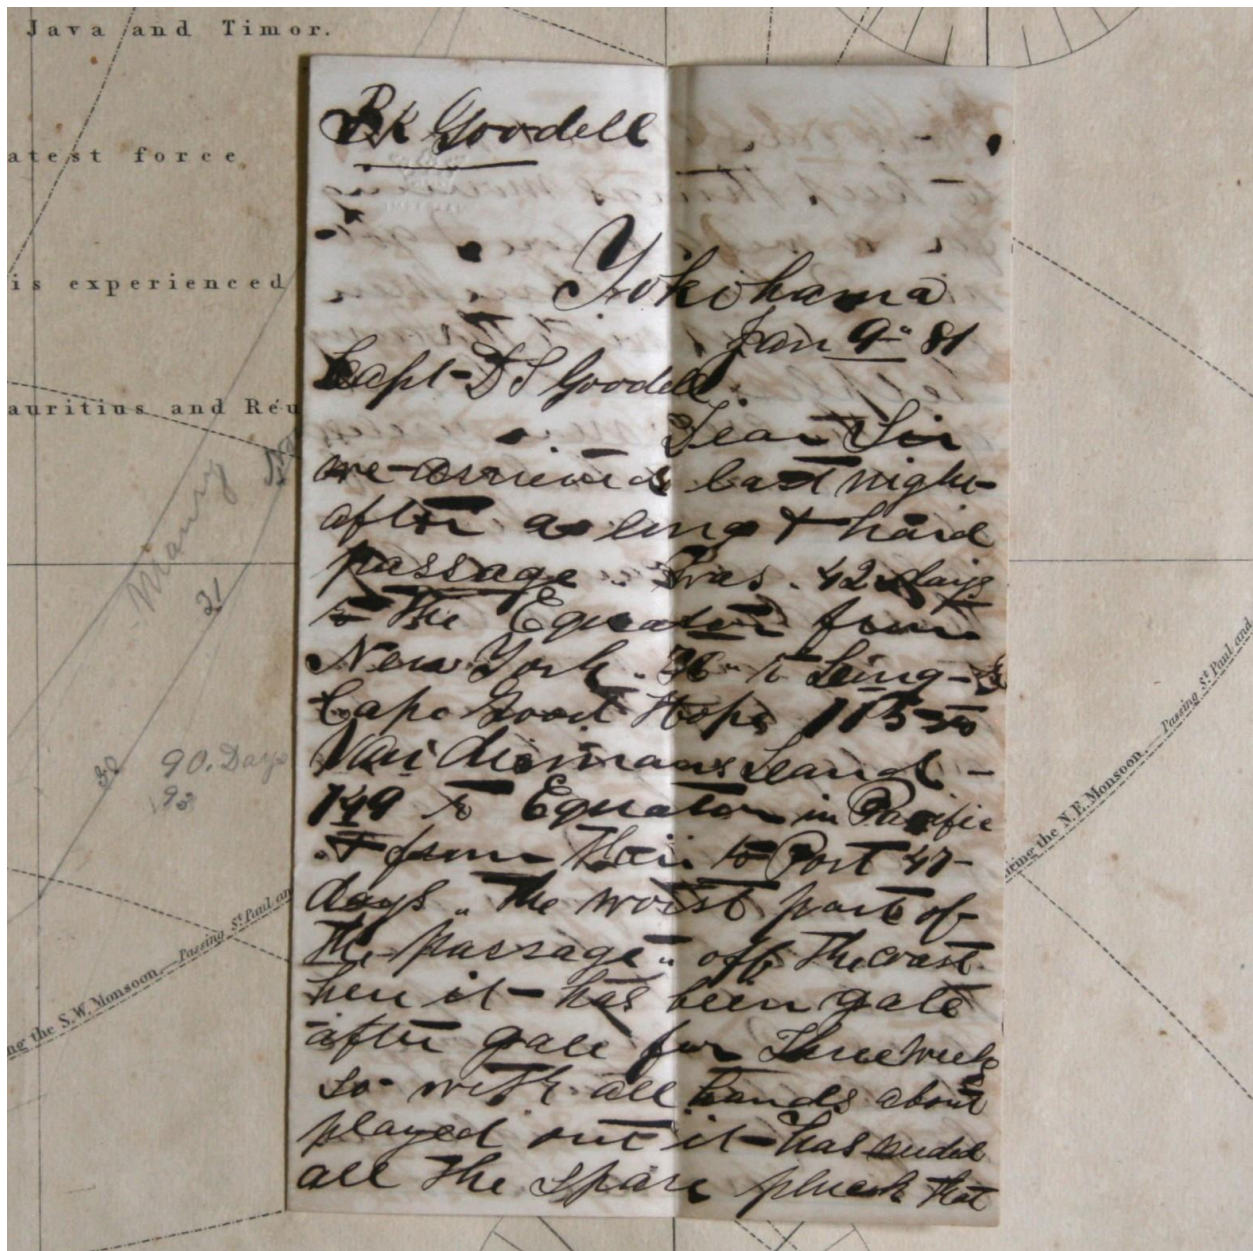 Java and Timor.
atest force
is experienced
auritius and Réu
Many
31
30
90. Days
93
ng the S.W. Monsoon,—Passing St. Paul an
ring the N.E. Monsoon,—Passing St. Paul and
Bk Goodell
Yokohama
Jan 9" 81
Capt- D S Goodell
Dear Sir
we arrived last night
after a long & hard
passage " was 42 days
to the Equator from
New York " to Long-
Cape Good Hope 115 to
Van diemans Leand -
149 to Equator in Pacific
" & from their to Port 47
days " the worst part of
the passage " off the coast
her it- has been gale
after gale for Three weeks
so with all hands about
played out it- has needed
all the spare pluck that